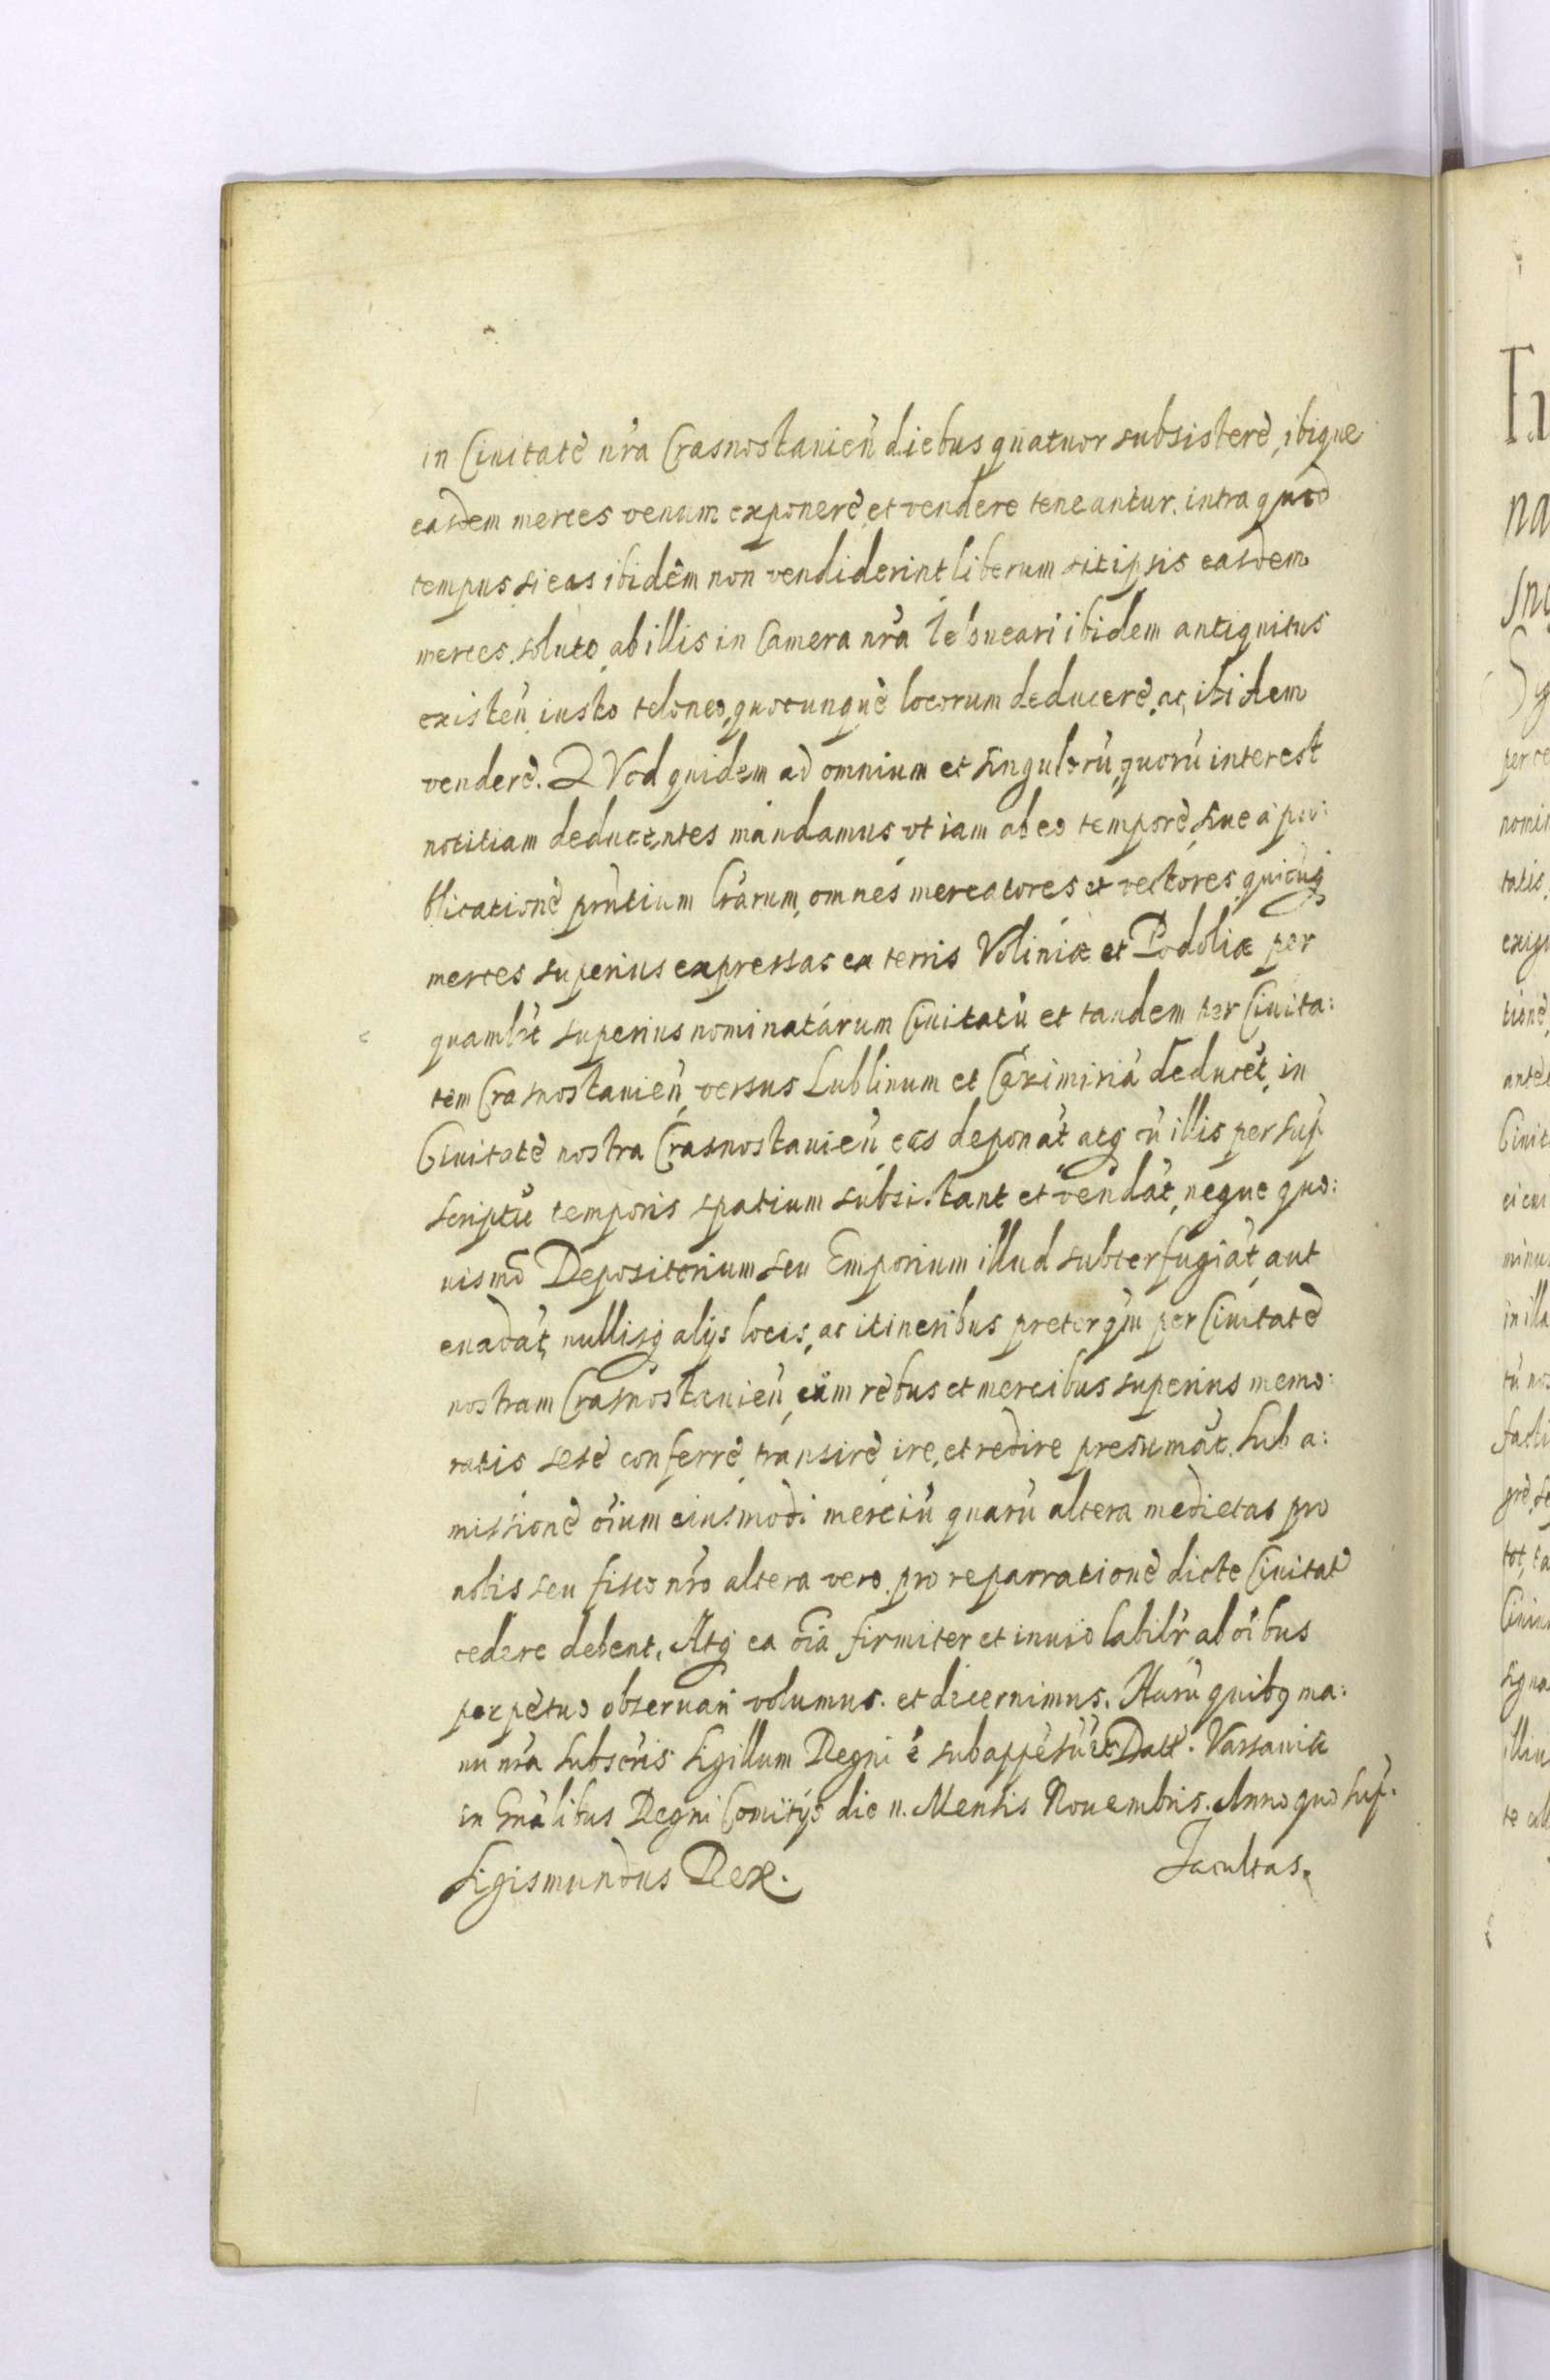 in Ciuitatè nr̃a Crasnostauien̉ diebus quatuor subsisterè, ibique
easdem merces venum exponerè et vendere teneantur. intra quod
tempus si eas ibidẽm non vendiderint liberum sit ipsis easdem
merces, soluto ab illis in Camera nr̃a Teloneari ibidem antiquitus
existen̉ iusto teloneo, quocunquè locorum deducerè, ac, ibidem
venderè. QVod quidem ad omnium et singulorù, quorù interest
notitiam deducentes mandamus vt iam ab eo temporè siue à pu:
blicationè pr̃ntium lr̃arum, omnes mercatores et vectores quicũq
merces superius expressas ex terris Voliniæ et Podoliæ per
quamlt̉ superius nominatárum Ciuitatù et tandem per Ciuita:
tem Crasnostauien̉, versus Lublinum et Cazimiriá deducét, in
Ciuitatè nostra Crasnostauien̉ eas deponát atq cù illis per sup̉
scriptù temporis spatium subsistant et vendát, neque quo:
uismõ Depositorium seu Emporium illud subterfugiát, aut
euadát, nullisq alijs locis, ac itineribus preterq̉m per Ciuitatè
nostram Crasnostauien̉, cum rebus et mercibus superius memo:
ratis sesè conferrè transirè, ire, et redire presumát. Sub a:
missionè oĩum eiusmodi merciù quarù altera medietas pro
nobis seu fisco nr̃o altera vero pro reparrationè dicte Ciuitat̉
cedere debent. Atq ea oĩa firmiter et inuiolabilr̉ ab oĩbus
perpètuo obseruari volumus. et decernimus. Harù quibq ma:
nu nr̃a subscris̉ sigillum Regni è subappèsù. Datt̉. Varsauiæ
in Gnã libus Regni Comitijs die 11. Mensis Nouembris. Anno quo sup̉.
Sigismundus Rex. Facultas.